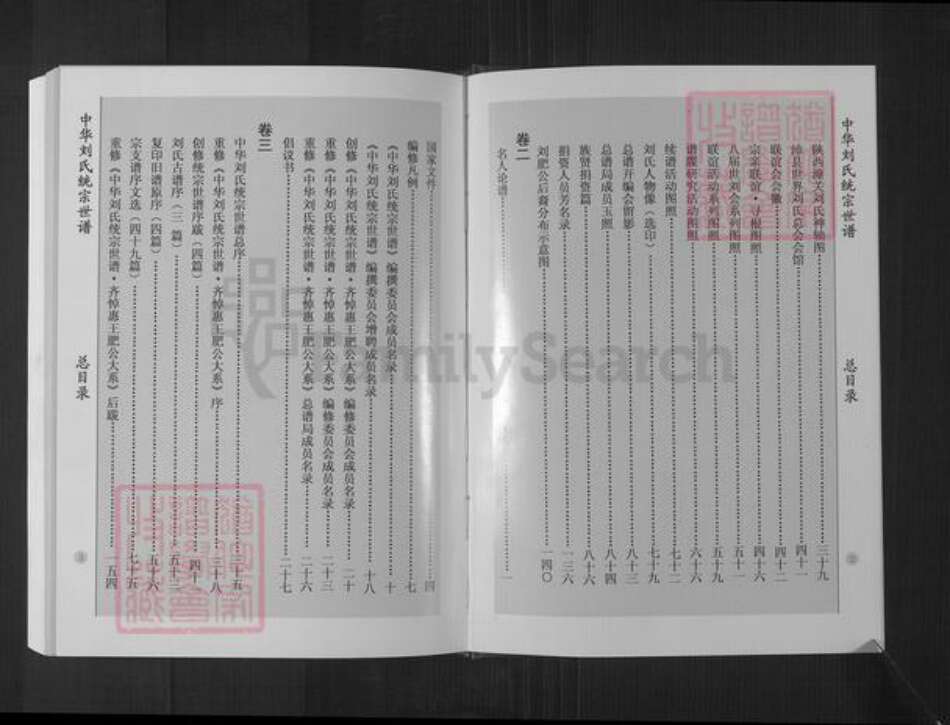 中华刘氏统宗世谱
总目录
陕西潼关刘氏神辅图 三十九
沛县世界刘氏总会会馆 四十一
联谊会会徽 四十二
宗亲联谊·寻根图照 四十六
八届世刘会系列图照 五十一
联谊活动系列图照 五十九
谱牒研究活动图照 六十六
续谱活动图照 七十二
刘氏人物像（选印） 七十九
总谱开编会留影 八十三
总谱局成员玉照 八十四
族贤捐资篇 八十六
捐资人员芳名录 一三六
刘肥公后裔分布示意图 一四〇
卷二
名人论谱 一
国家文件 四
编修凡例 七
《中华刘氏统宗世谱》编撰委员会成员名录 十
《中华刘氏统宗世谱》编撰委员会增聘成员名录 十八
创修《中华刘氏统宗世谱·齐悼惠王肥公大系》编修委员会成员名录 二十
重修《中华刘氏统宗世谱·齐悼惠王肥公大系》编修委员会成员名录 二十三
重修《中华刘氏统宗世谱·齐悼惠王肥公大系》总谱局成员名录 二十六
倡议书 二十七
卷三
中华刘氏统宗世谱总序 十五
重修《中华刘氏统宗世谱·齐悼惠王肥公大系》序 三十八
创修统宗世谱序跋（四篇） 四十
刘氏古谱序（三篇） 五十三
复印旧谱原序（四篇） 五十六
宗支谱序文选（四十九篇） 七十五
重修《中华刘氏统宗世谱·齐悼惠王肥公大系》后跋 一五四
中华刘氏统宗世谱
总目录
FamilySearch